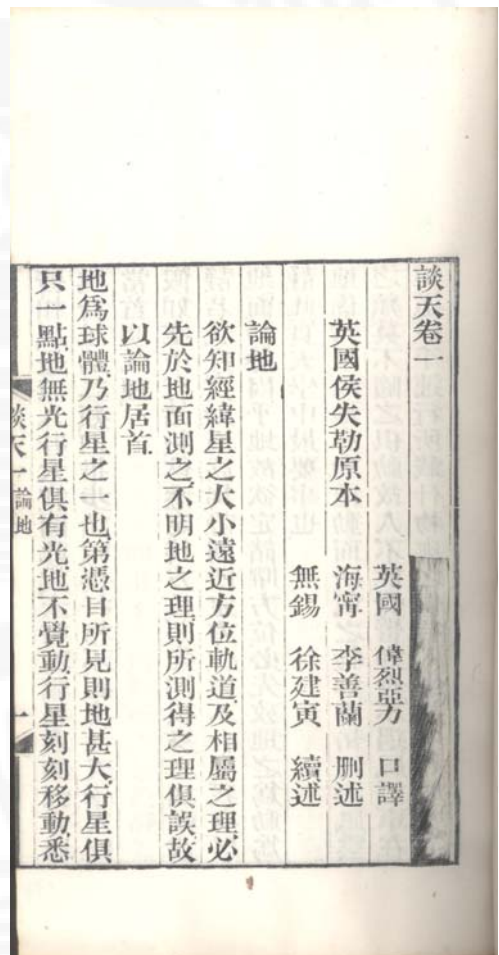 談天卷一
英國 偉烈亞力 口譯
英國侯失勒原本 海甯 李善蘭 刪述
無錫 徐建寅 續述
論地
欲知經緯星之大小遠近方位軌道及相屬之理必
先於地面測之不明地之理則所測得之理俱誤故
以論地居首
地為球體乃行星之一也第憑目所見則地甚大行星俱
只一點地無光行星俱有光地不覺動行星刻刻移動悉
談天一 論地 一